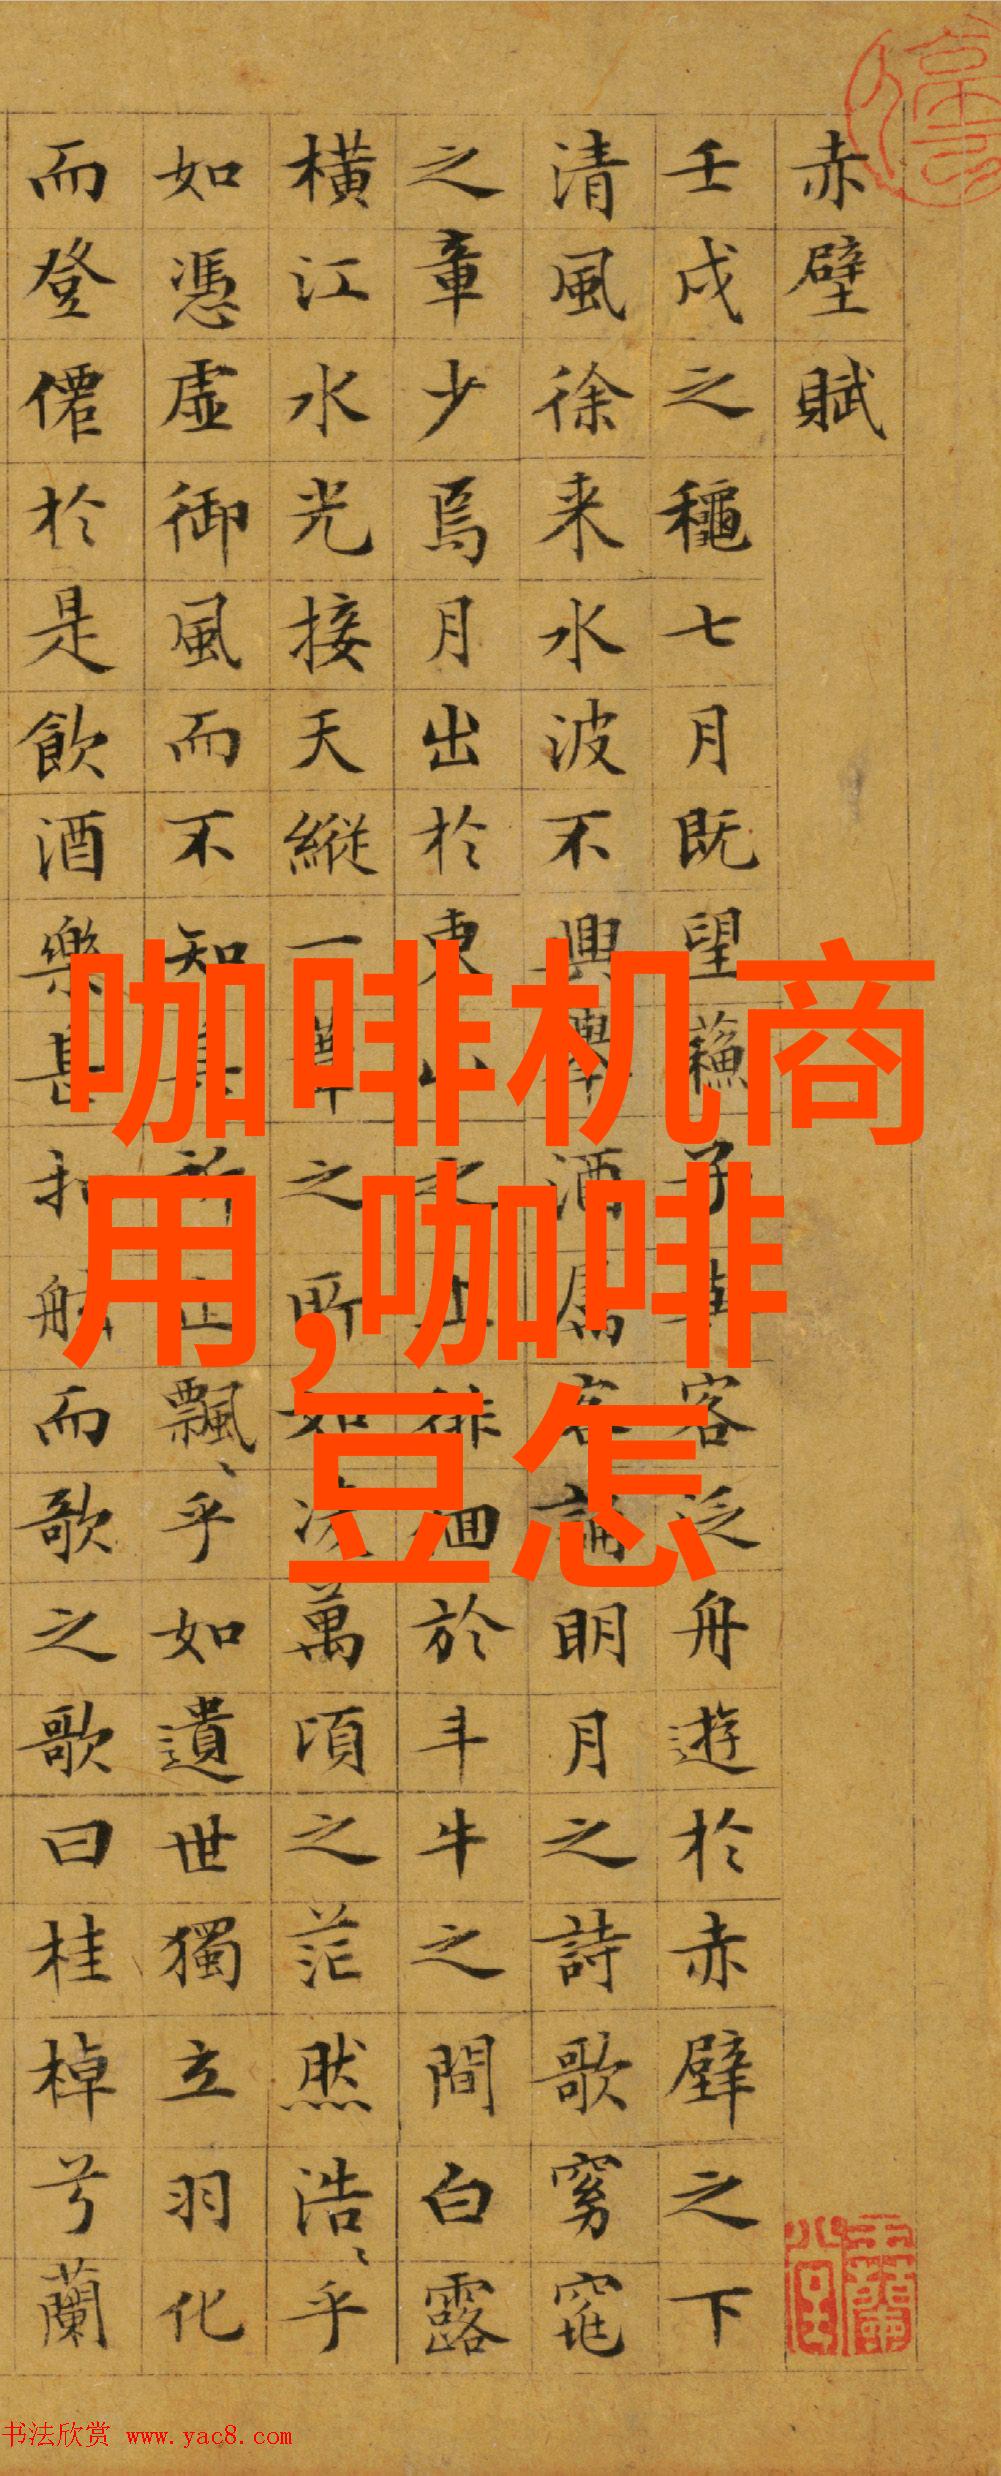 赤壁賦
壬戌之穐七月既望蘓子與客泛舟遊於赤壁之下
清風徐来水波不興舉酒屬客誦明月之詩歌窈窕
之章少焉月出於東山之上徘徊於斗牛之間白露
橫江水光接天縱一葦之所如凌萬頃之茫然浩〻乎
如憑虛御風而不知其所止飄〻乎如遺世獨立羽化
而登僊於是飲酒樂甚扣舷而歌之歌曰桂棹兮蘭
咖啡机商
用,咖啡
豆怎
书法欣赏 www.yac8.com